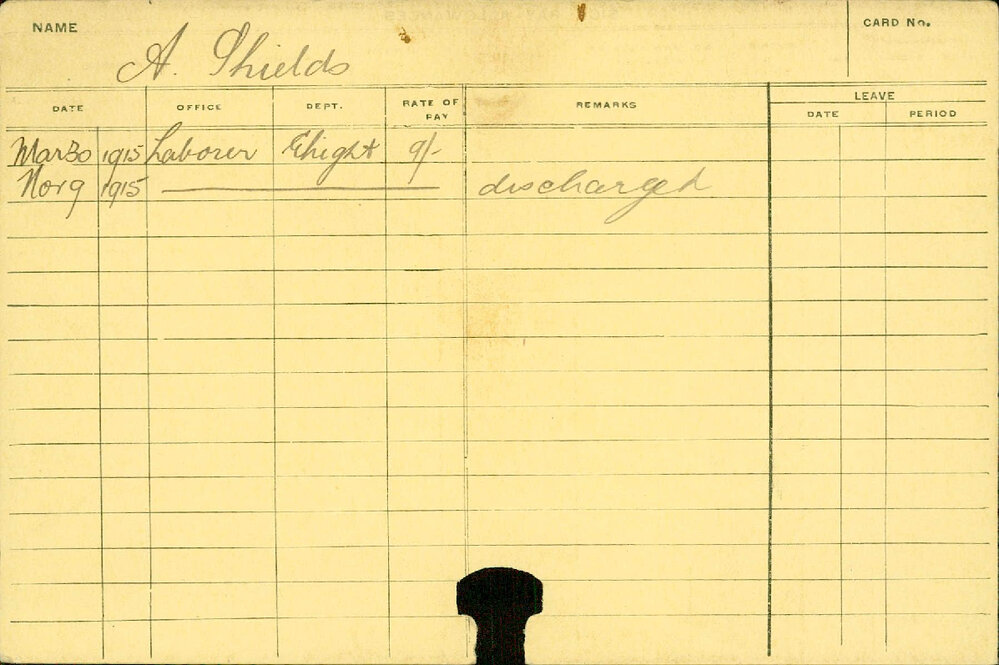 NAME A. Shields CARD No.
DATE OFFICE DEPT. RATE OF PAY REMARKS LEAVE
DATE PERIOD
Mar 30 1915 Laborer Elight 9/-
Nov 9 1915 discharged